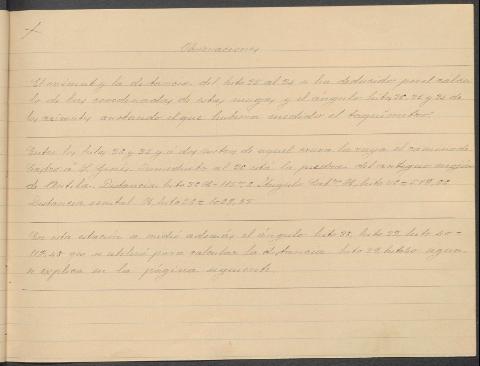 Observaciones
El azimut y la distancia del hito 25 al 24 se ha deducido por el calcu-
lo de las coordenadas de estas mugas y el ángulo hito 26, 25 y 24 de
los azimuts anotando el que hubiera medido el taquímetro.
Entre los hitos 20 y 22 y a dos metros de aquel cruza la raya el camino de
a S. Ginés. Inmediato al 20 está la piedra del antiguo mojón
de Distancia hito 20 Angulo hito
Distancia hito 20 =
En esta estación se midió además el ángulo hito 38, hito 29, hito 40 =
112,48 que se utilizó para calcular la distancia hito 29, hito 40 segun
se explica en la página siguiente.